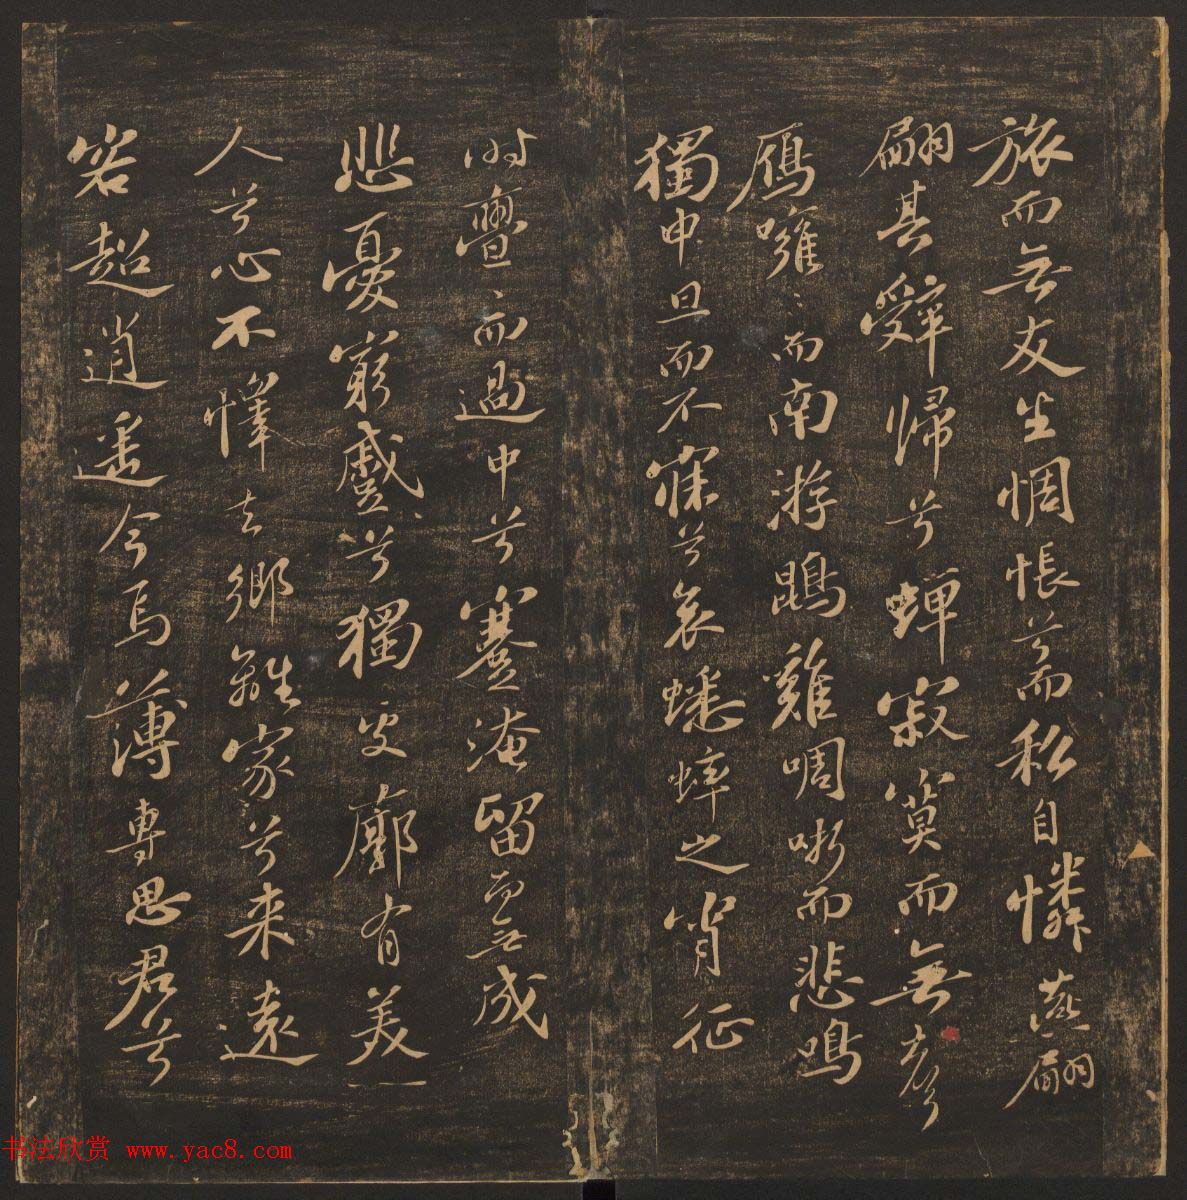 旅而無友生惆悵兮而私自憐燕翩
翩其辭歸兮蟬寂寞而無聲
鴈噰〻而南游鵾雞啁哳而悲鳴
獨申旦而不寐兮哀蟋蟀之宵征
時亹〻而過中兮蹇淹留而無成
悲憂窮蹙兮獨處廓有美一
人兮心不懌去鄉離家兮来遠
客超逍遙今焉薄專思君兮
书法欣赏 www.yac8.com